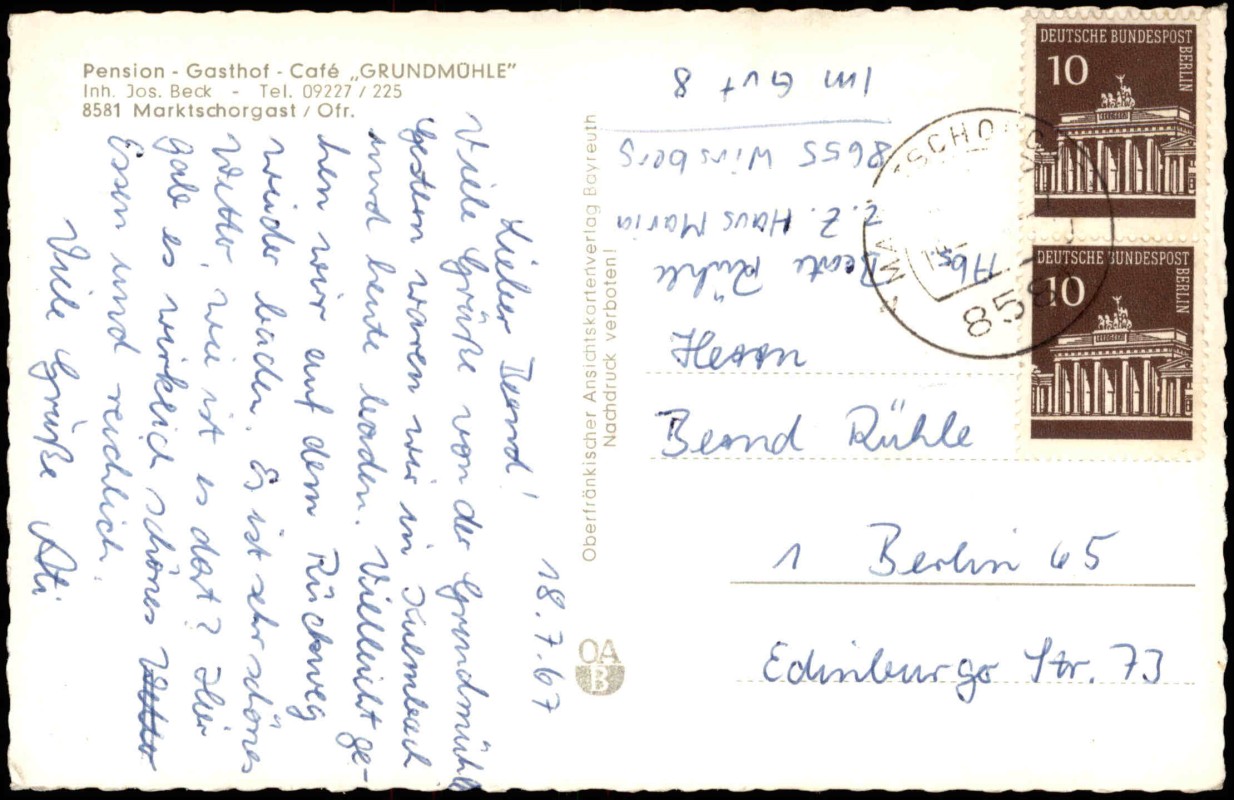 Pension - Gasthof - Café „GRUNDMÜHLE"
Inh. Jos. Beck - Tel. 09227 / 225
8581 Marktschorgast / Ofr.
18.7.67
Lieber Bernd!
Viele Grüße von der Grundmühle
Gestern waren wir in Kulmbach
und heute baden. Vielleicht ge-
hen wir auf dem Rückweg
wieder baden. Es ist sehr schönes
Wetter, wie ist es dort? Hier
gab es wirklich schönes Wetter
Essen und reichlich.
Viele Grüße Ati
Oberfränkischer Ansichtskartenverlag Bayreuth
Nachdruck verboten!
OA
B
Abs. Beate Rühle
z. Z. Haus Maria
8655 Wirsberg
Im Gut 8
DEUTSCHE BUNDESPOST
BERLIN
10
DEUTSCHE BUNDESPOST
BERLIN
10
858
Herrn
Bernd Rühle
1 Berlin 65
Edinburger Str. 73